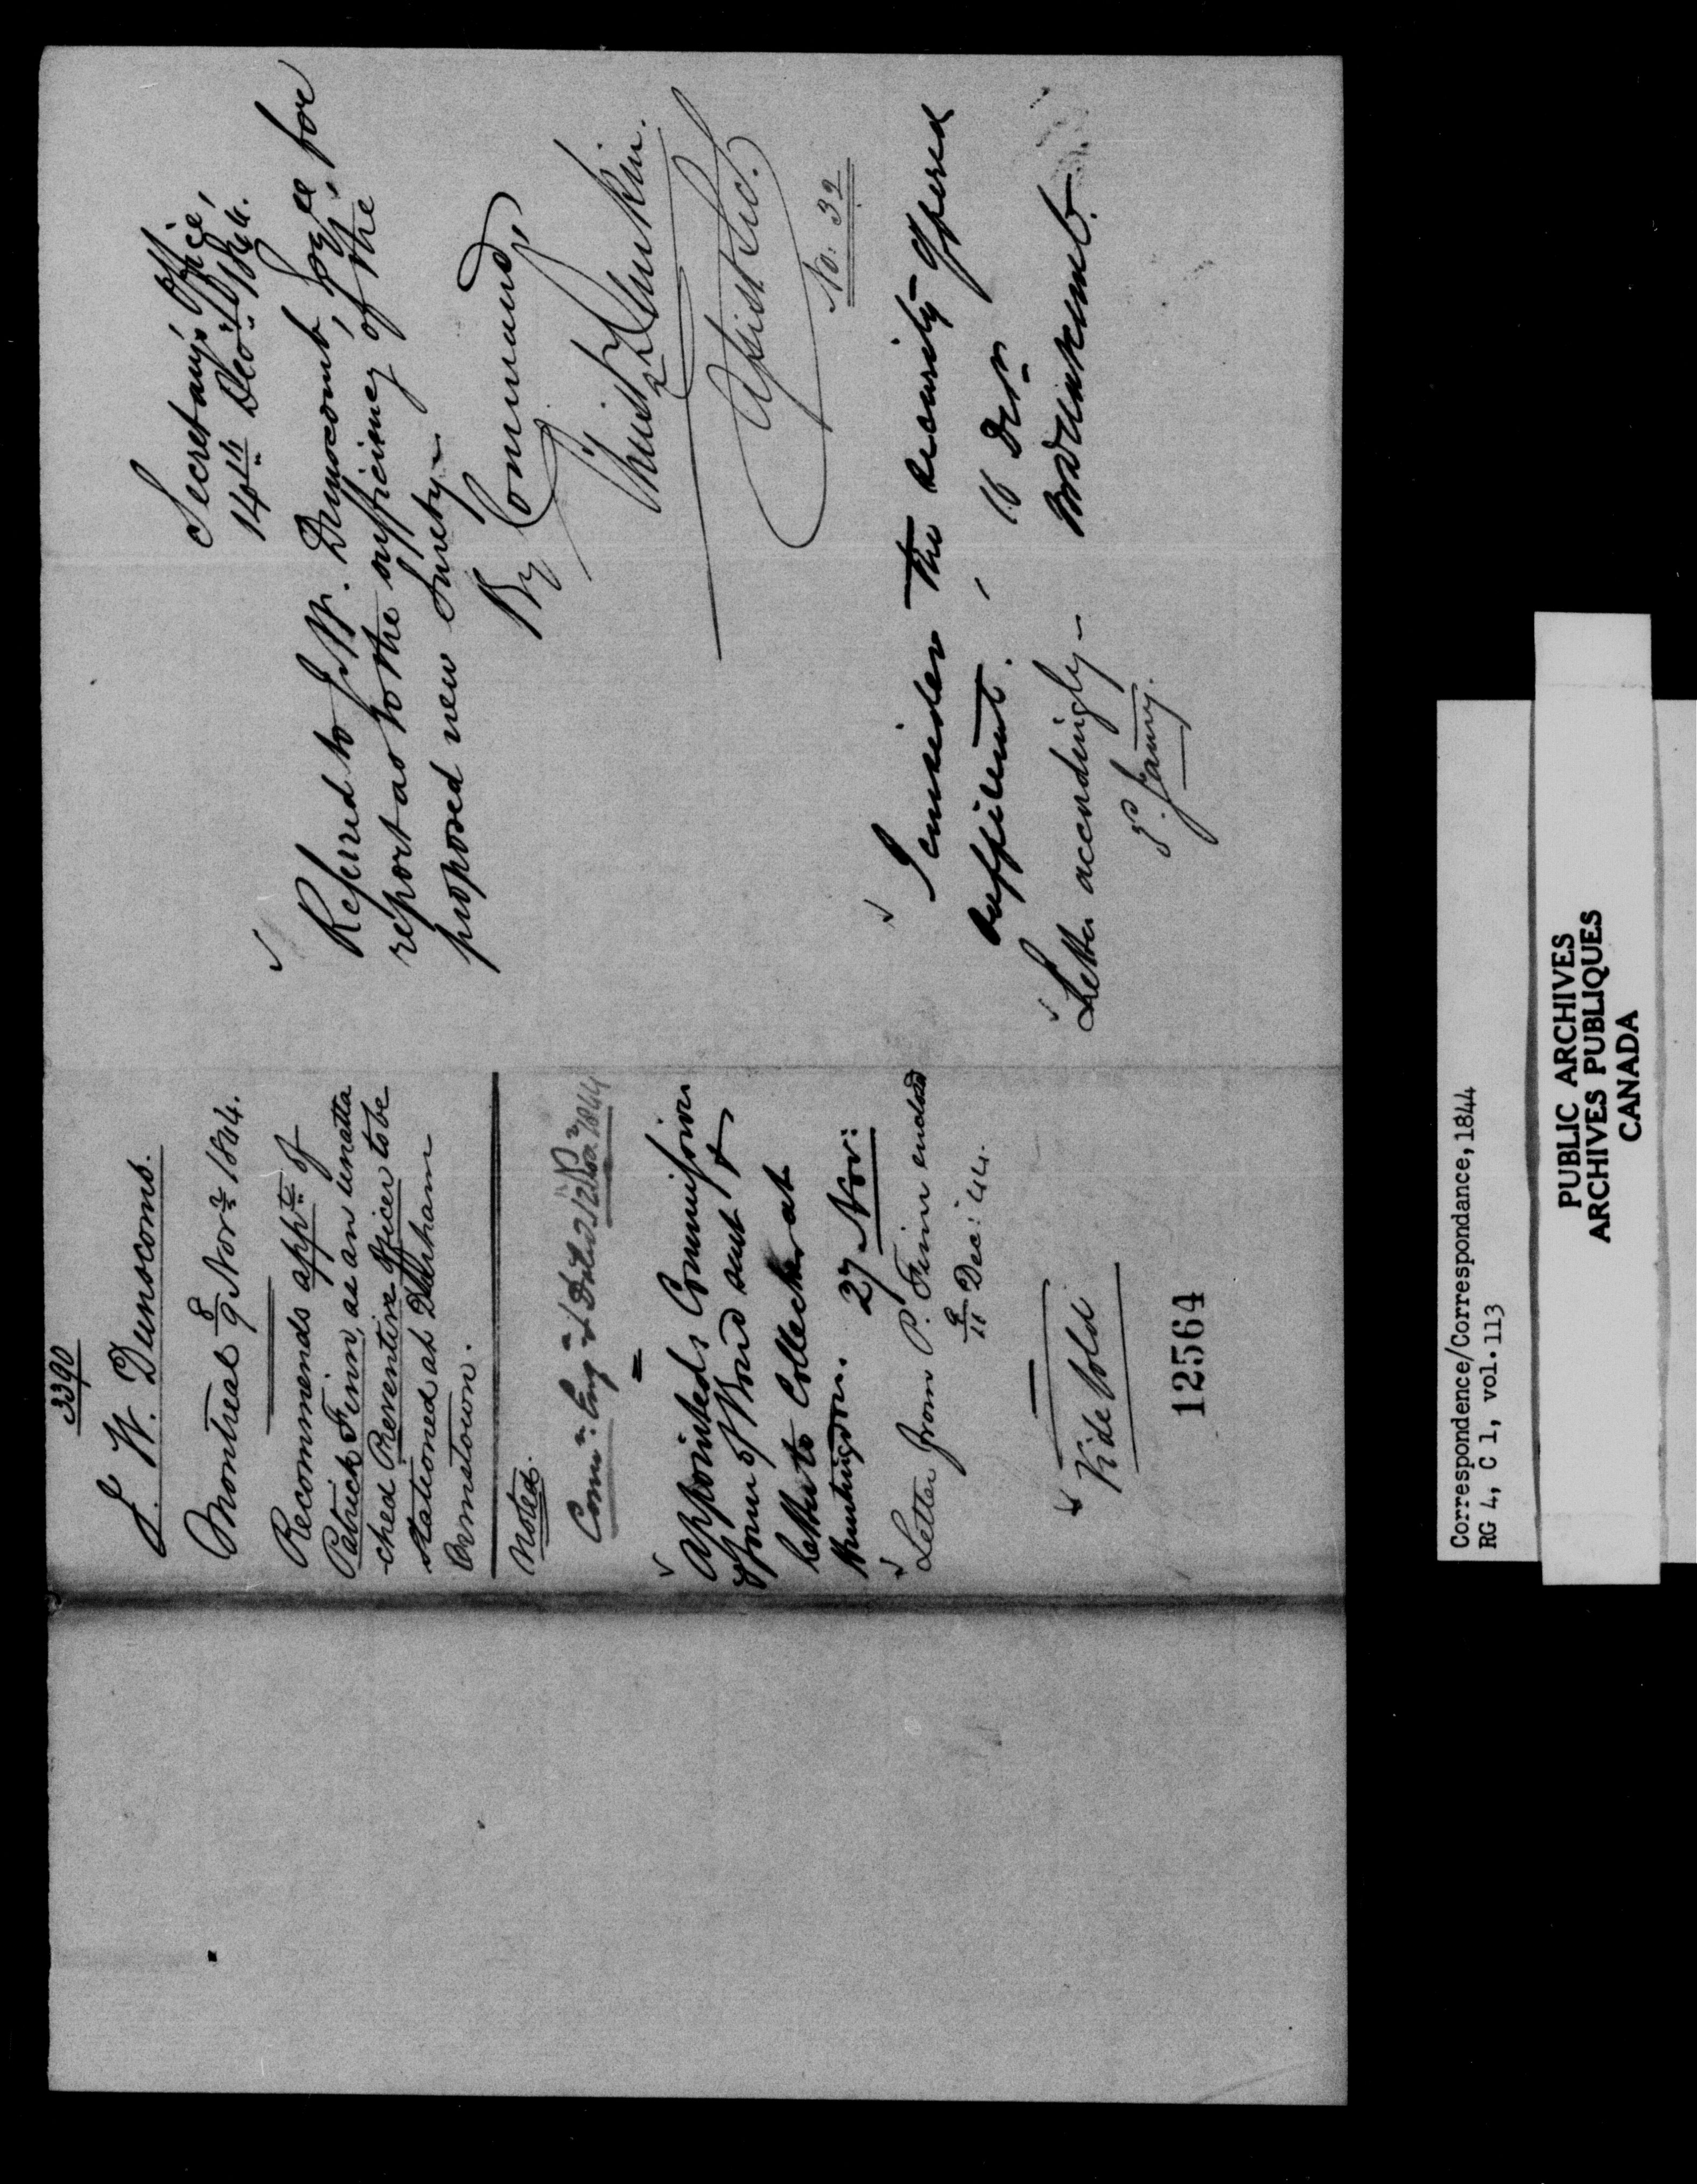 3390
J. W. Dunscomb.
Montreal 8/9 Novr 1844.
Recommends appt of
Patrick Finn, as an unatta
ched Preventive Officer to be
stationed at Durham
Ormstown.
Noted.
Comn: Enqd & Dated 12 Novr 1844
Appointed, Commission
Form of Bond sent &
letter to Collector at
Huntingdon. 27 Nov:
Letter from P. Finn enclosed
9/11 Dec: 44.
Vide Fold
12564
Secretary's Office,
14th Decr 1844.
Referred to J. W. Dunscomb, for
report as to the sufficiency of the
proposed new Surety.
By Command,
Christr Dunkin.
Assist. Sec.
No. 32
I consider the security offered
sufficient. 16 Decr
JWDunscomb.
Letter accordingly
8. Jany.
Correspondence/Correspondance, 1844
RG 4, C 1, vol. 113
PUBLIC ARCHIVES
ARCHIVES PUBLIQUES
CANADA